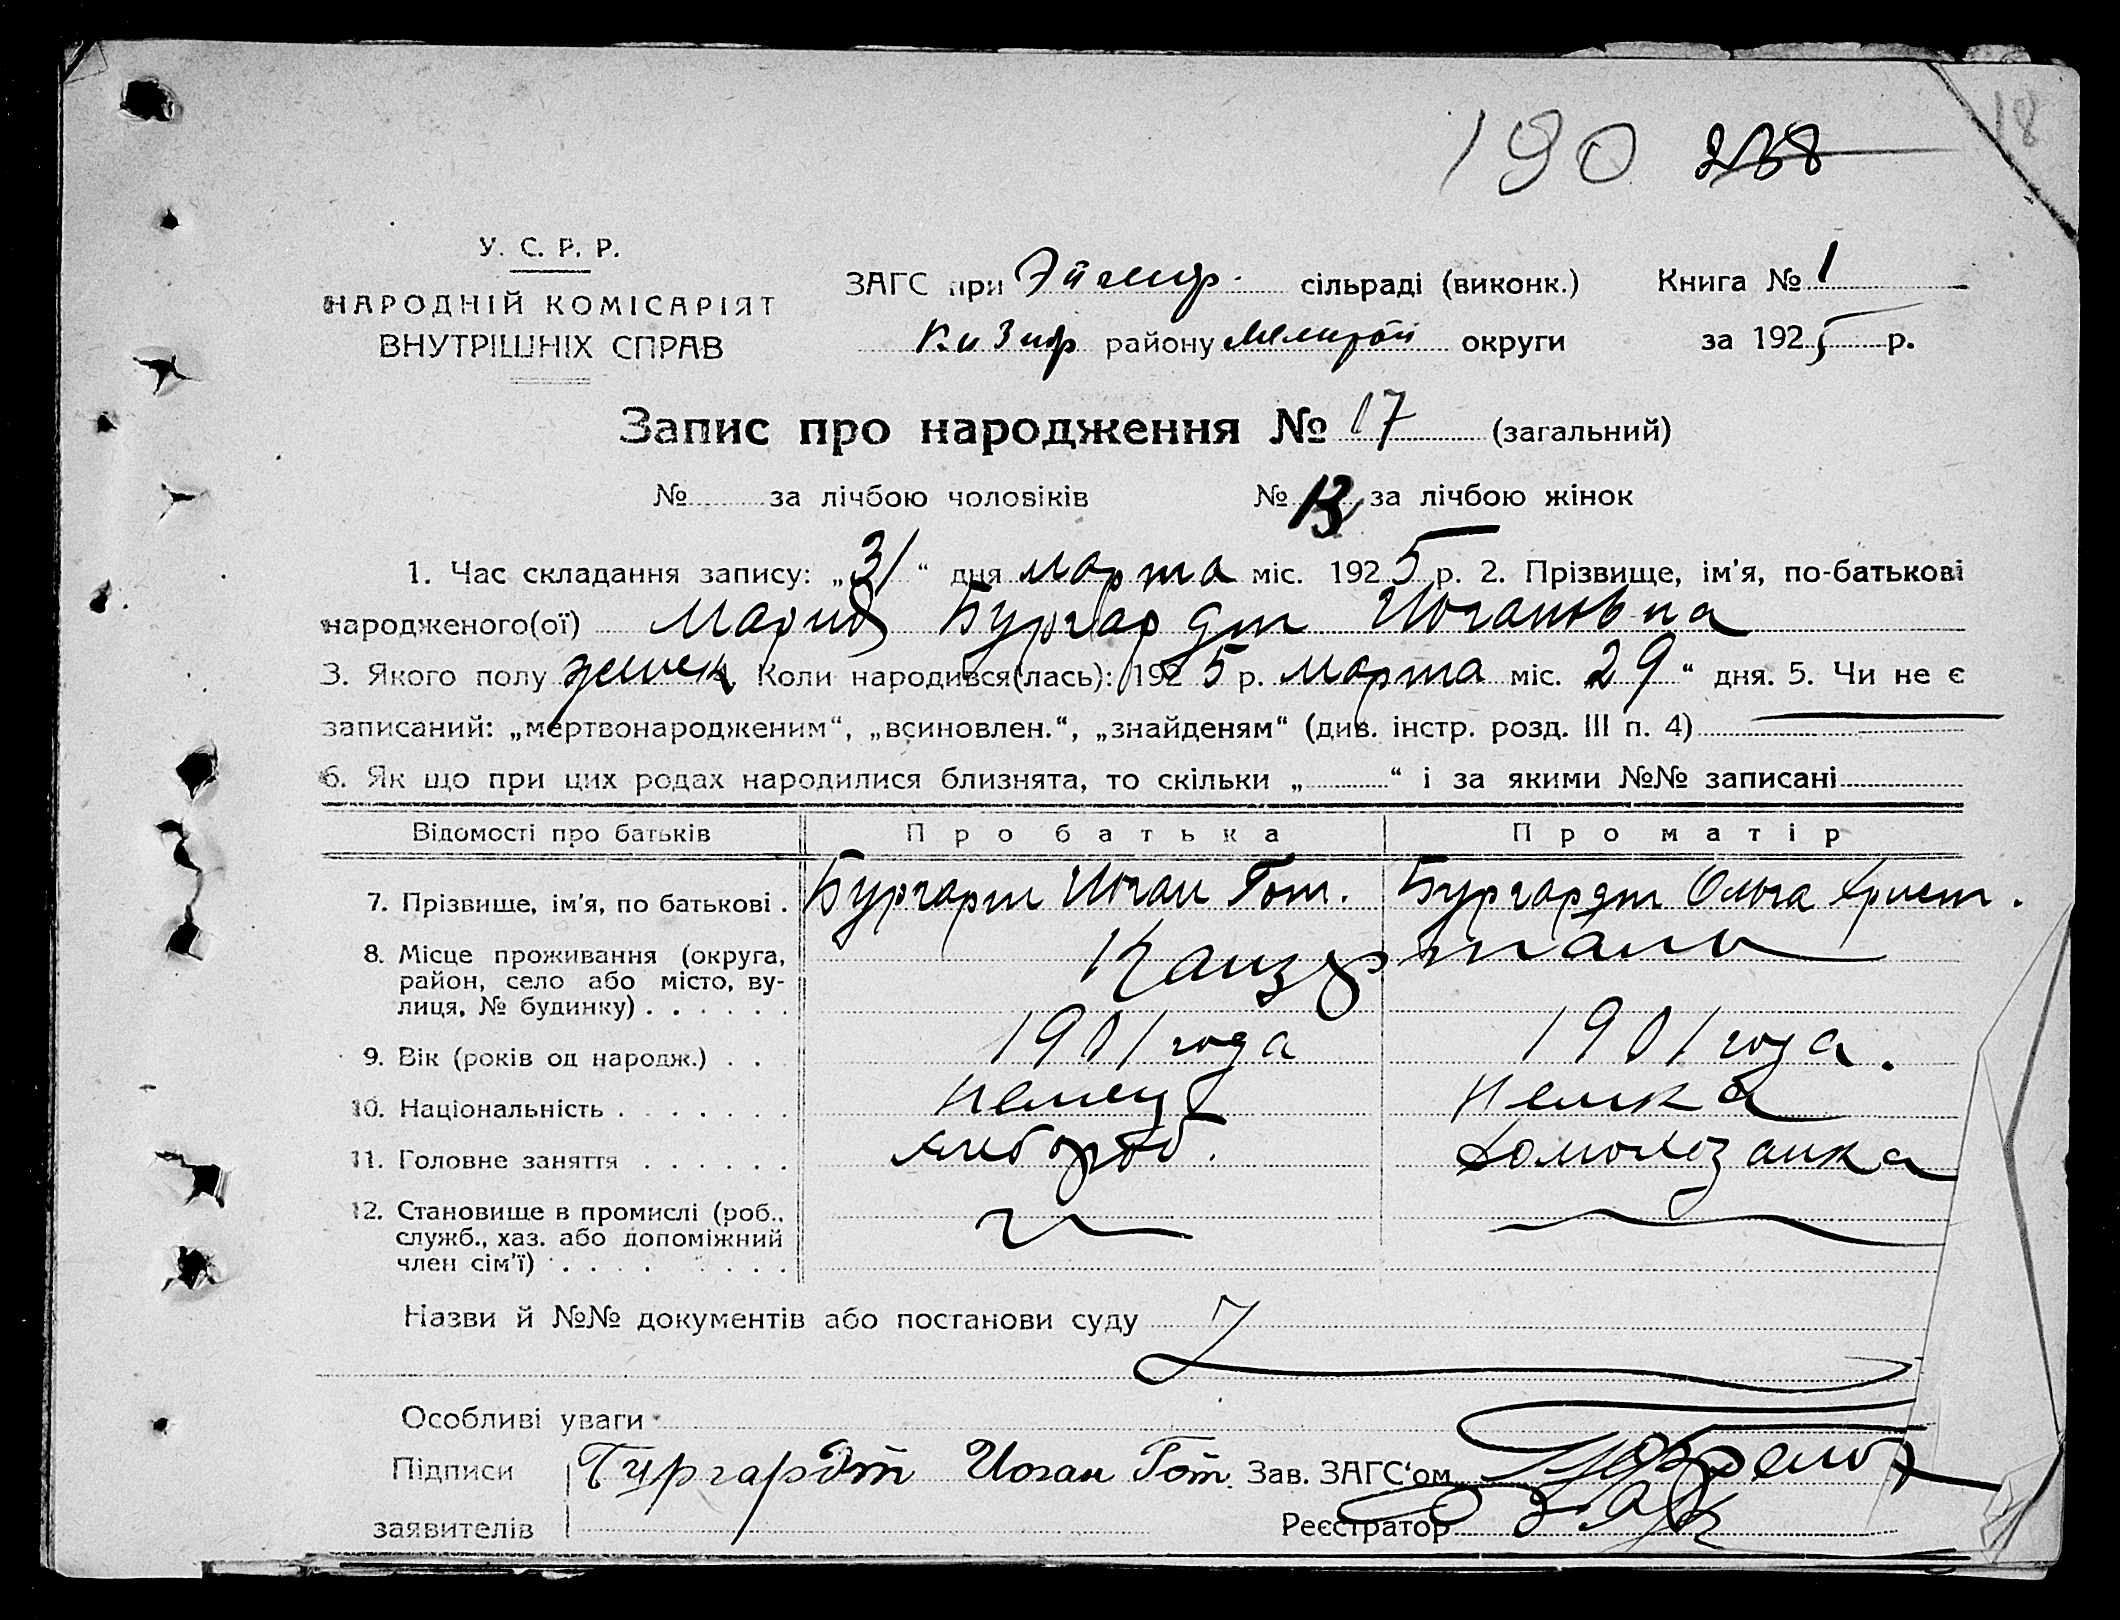 18
190 238
У. С. Р. Р.
НАРОДНІЙ КОМІСАРІЯТ
ВНУТРІШНІХ СПРАВ
ЗАГС при сільраді (виконк.) Книга № 1
району округи за 1925 р.
Запис про народження № 17 (загальний)
№ за лічбою чоловіків № 13 за лічбою жінок
1. Час складання запису: „31“ дня марта міс. 1925 р. 2. Прізвище, ім'я, по-батькові
народженого(ої) Мария Бургардт Иогановна
3. Якого полу женск. Коли народився(лась): 1925 р. марта міс. „29“ дня. 5. Чи не є
записаний: „мертвонародженим“, „всиновлен.“, „знайденям“ (див. інстр. розд. III п. 4)
6. Як що при цих родах народилися близнята, то скільки „ “ і за якими №№ записані
Відомості про батьків Про батька Про матір
7. Прізвище, ім'я, по батькові . Бургарт Иоган Гот. Бургардт Ольга Христ.
8. Місце проживання (округа,
район, село або місто, ву-
лиця, № будинку) . . . . . .
9. Вік (років од народж.) . . 1901 года 1901 года.
10. Національність . . . . . . . немец немка
11. Головне заняття . . . . . . хлебороб. домохозаика
12. Становище в промислі (роб.,
служб., хаз. або допоміжний
член сім'ї) . . . . . . . .
Назви й №№ документів або постанови суду
Особливі уваги
Підписи Бургардт Иоган Гот. Зав. ЗАГС'ом
заявителів Реєстратор